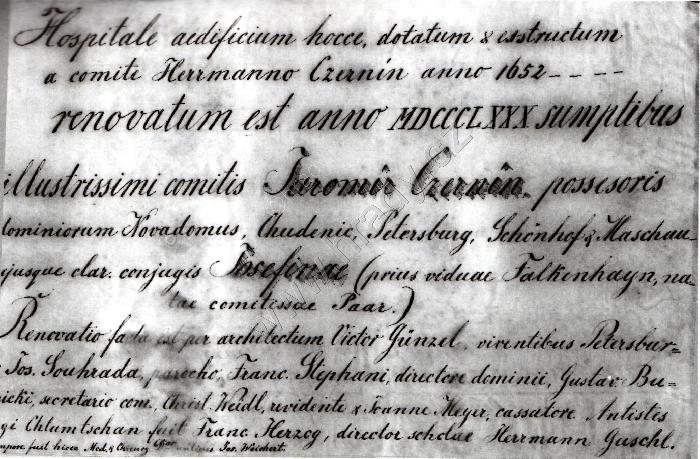 Hospitale aedificium hocce, dotatum & exstructum
a comite Herrmanno Czernín anno 1652 _ _ _ _
renovatum est anno MDCCCLXXX sumptibus
illustrissimi comitis Jaromír Czernín possesoris
dominiorum Novadomus, Chudenic, Petersburg, Schönhof & Maschau
ejusque clar. conjugis Josefinae (prius viduae Falkenhayn, na-
tae comitissae Paar.)
Renovatio facta est per architectum Victor Günzel, viventibus Petersbur=
Jos. Souhrada, parocho, Franc. Stephani, directore dominii, Gustav Bu-
nicki, secretario com., Christ. Weidl, uvidente & Joanne Meyer, cassatore Antistes
gi Chlumtschan fuit Franc. Herzog, director scholae Herrmann Guschl.
mpore fuit hicce Med. & Chirurg Jos. Weichert.